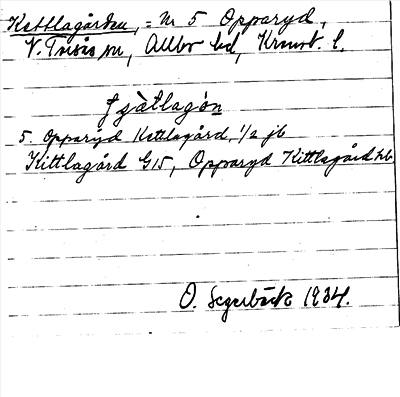 Kettlagården, = Nr 5 Opparyd,
V. Torsås sn, Allbo hd, Kronob. l.
5 Opparyd Kettlagård, 1/2 jb
Kittlagård G15, Opparyd Kittlagård hb
O. Segerbäck 1934.